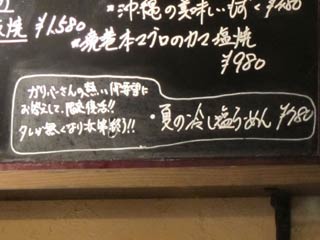 焼 ¥1,580
・沖縄の美味い
・廃荒本マグロのカマ塩焼
¥980
ガリバーさんの熱い御要望に
お答えして、限定復活!!
タレが無くなり次第終了!!
・夏の冷し塩らーめん ¥780